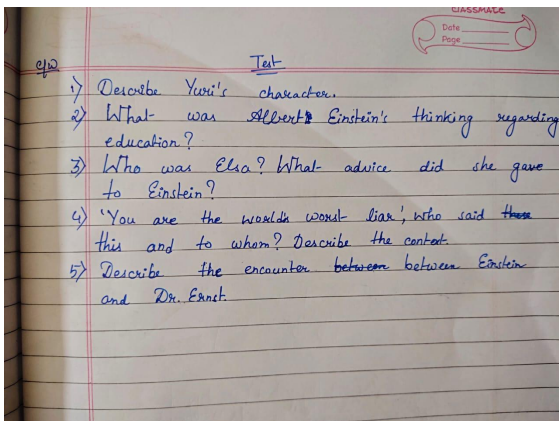 CLASSMATE
Date
Page
c/w
Test
1) Describe Yuri's character.
2) What was Albert Einstein's thinking regarding
education?
3) Who was Elsa? What advice did she gave
to Einstein?
4) 'You are the world's worst liar', who said
this and to whom? Describe the context.
5) Describe the encounter between between Einstein
and Dr. Ernst.